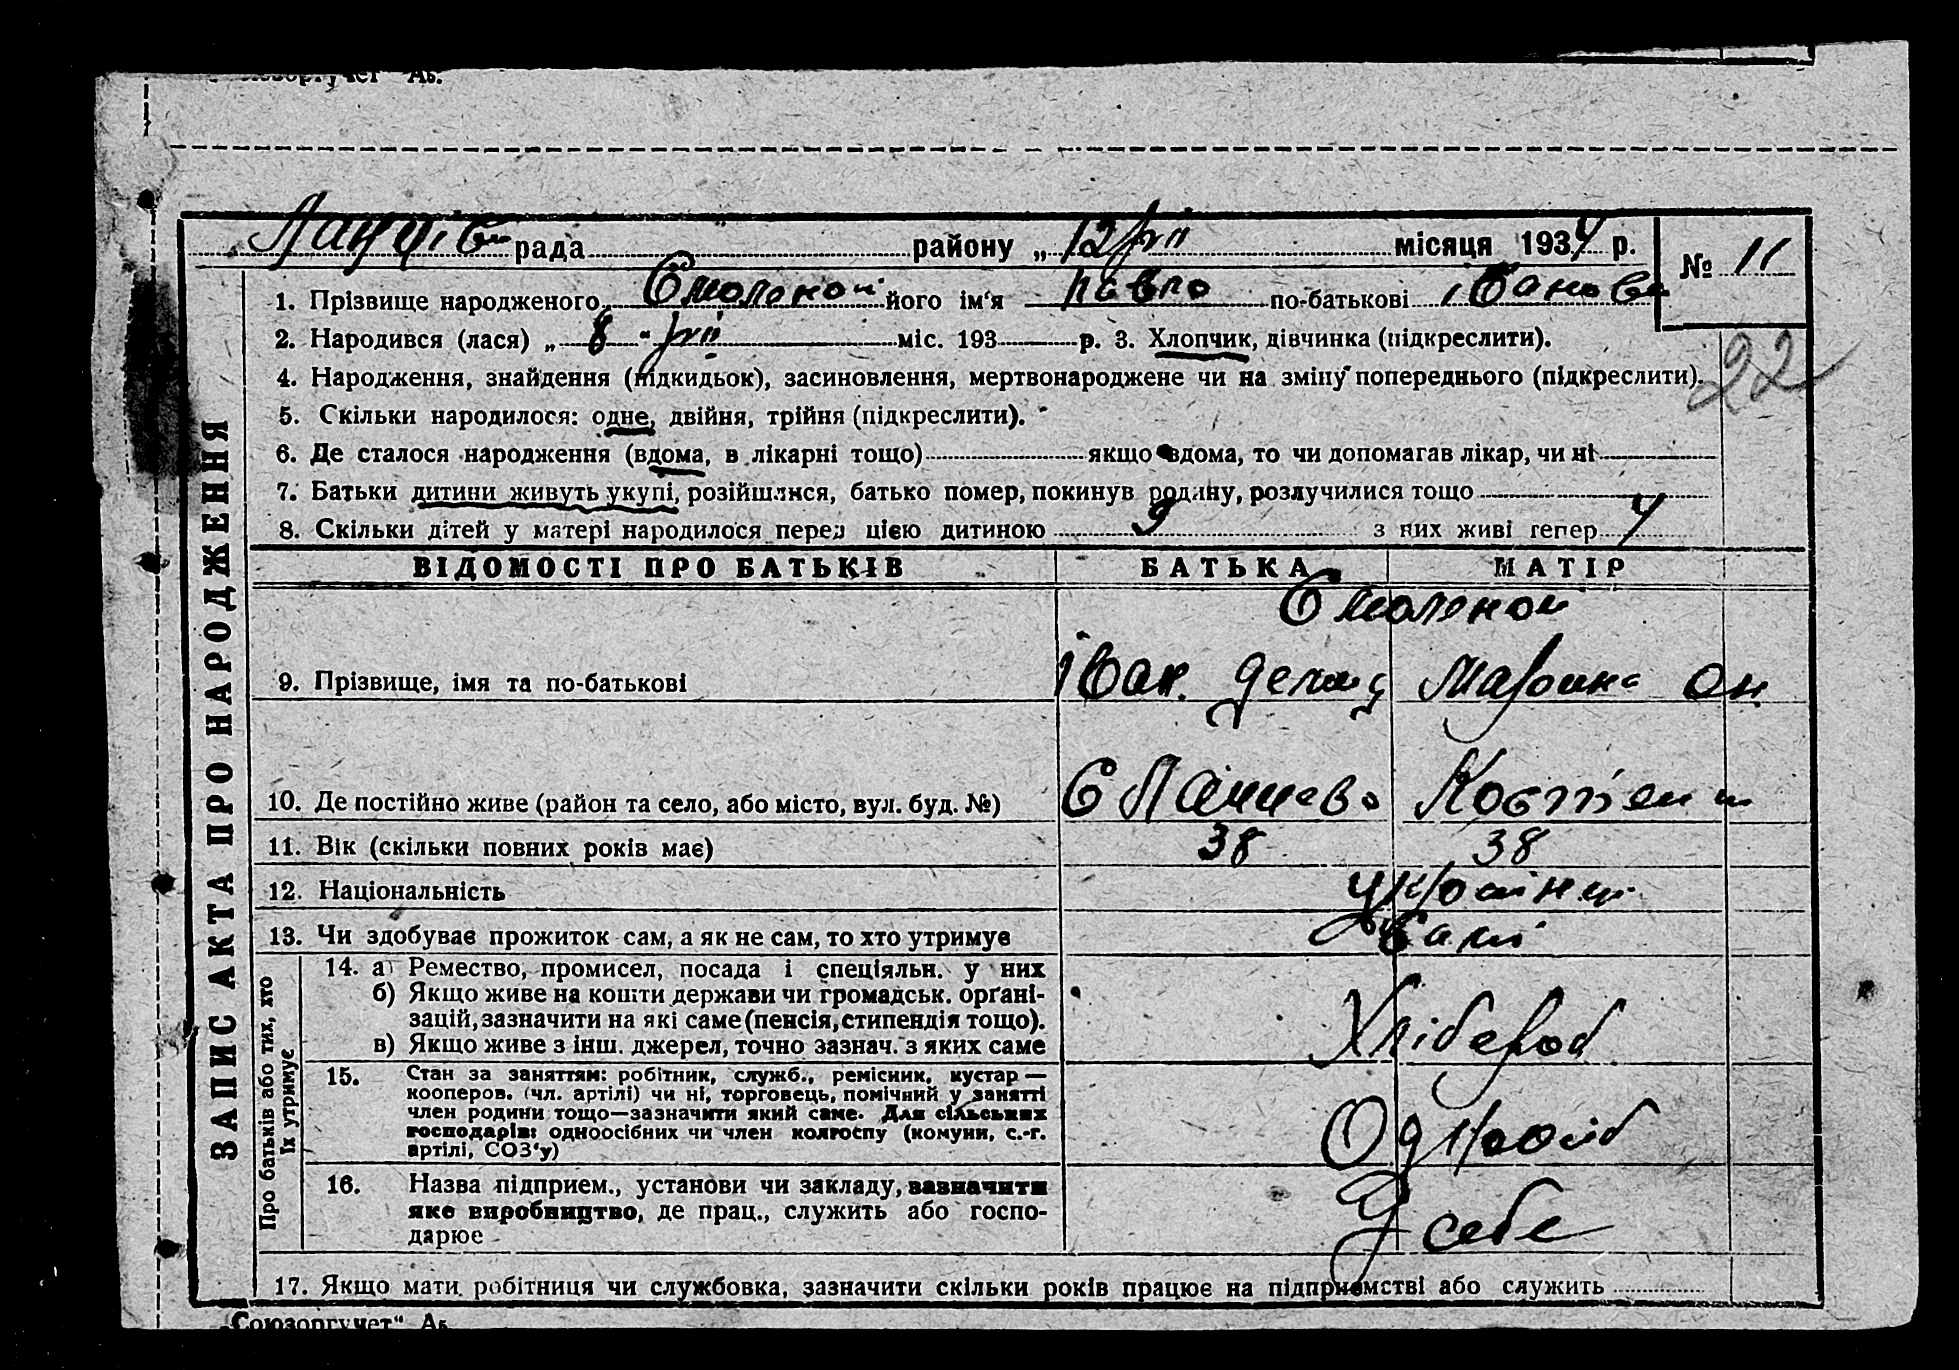 рада району „ 12 місяця 1934 р.
№ 11
1. Прізвище народженого його ім'я Павло по-батькові Іванов
2. Народився (лася) „ 8 " міс. 193 р. 3. Хлопчик, дівчинка (підкреслити).
22
4. Народження, знайдення (підкидьок), засиновлення, мертвонароджене чи на зміну попереднього (підкреслити).
5. Скільки народилося: одне, двійня, трійня (підкреслити).
6. Де сталося народження (вдома, в лікарні тощо) якщо вдома, то чи допомагав лікар, чи ні
7. Батьки дитини живуть укупі, розійшлися, батько помер, покинув родину, розлучилися тощо
8. Скільки дітей у матері народилося перед цією дитиною 9 з них живі тепер 4
ЗАПИС АКТА ПРО НАРОДЖЕННЯ
ВІДОМОСТІ ПРО БАТЬКІВ БАТЬКА МАТІР
9. Прізвище, імя та по-батькові Іван Марина
10. Де постійно живе (район та село, або місто, вул. буд. №)
11. Вік (скільки повних років має) 38 38
12. Національність українці
13. Чи здобуває прожиток сам, а як не сам, то хто утримує Самі
Про батьків або тих, хто
їх утримує
14. а) Ремество, промисел, посада і спеціяльн. у них
б) Якщо живе на кошти держави чи громадськ. органі-
зацій, зазначити на які саме (пенсія, стипендія тощо).
в) Якщо живе з інш. джерел, точно зазнач. з яких саме
Хлібороб
15. Стан за заняттям: робітник, служб., ремісник, кустар —
кооперов. (чл. артілі) чи ні, торговець, помічний у занятті
член родини тощо—зазначити який саме. Для сільських
господарів: одноосібних чи член колгоспу (комуни, с.-г.
артілі, СОЗ'у)
Одноосіб
16. Назва підприєм., установи чи закладу, зазначити
яке виробництво, де прац., служить або госпо-
дарює
У себе
17. Якщо мати робітниця чи службовка, зазначити скільки років працює на підприємстві або служить
„Союзоргучет“ Аб.